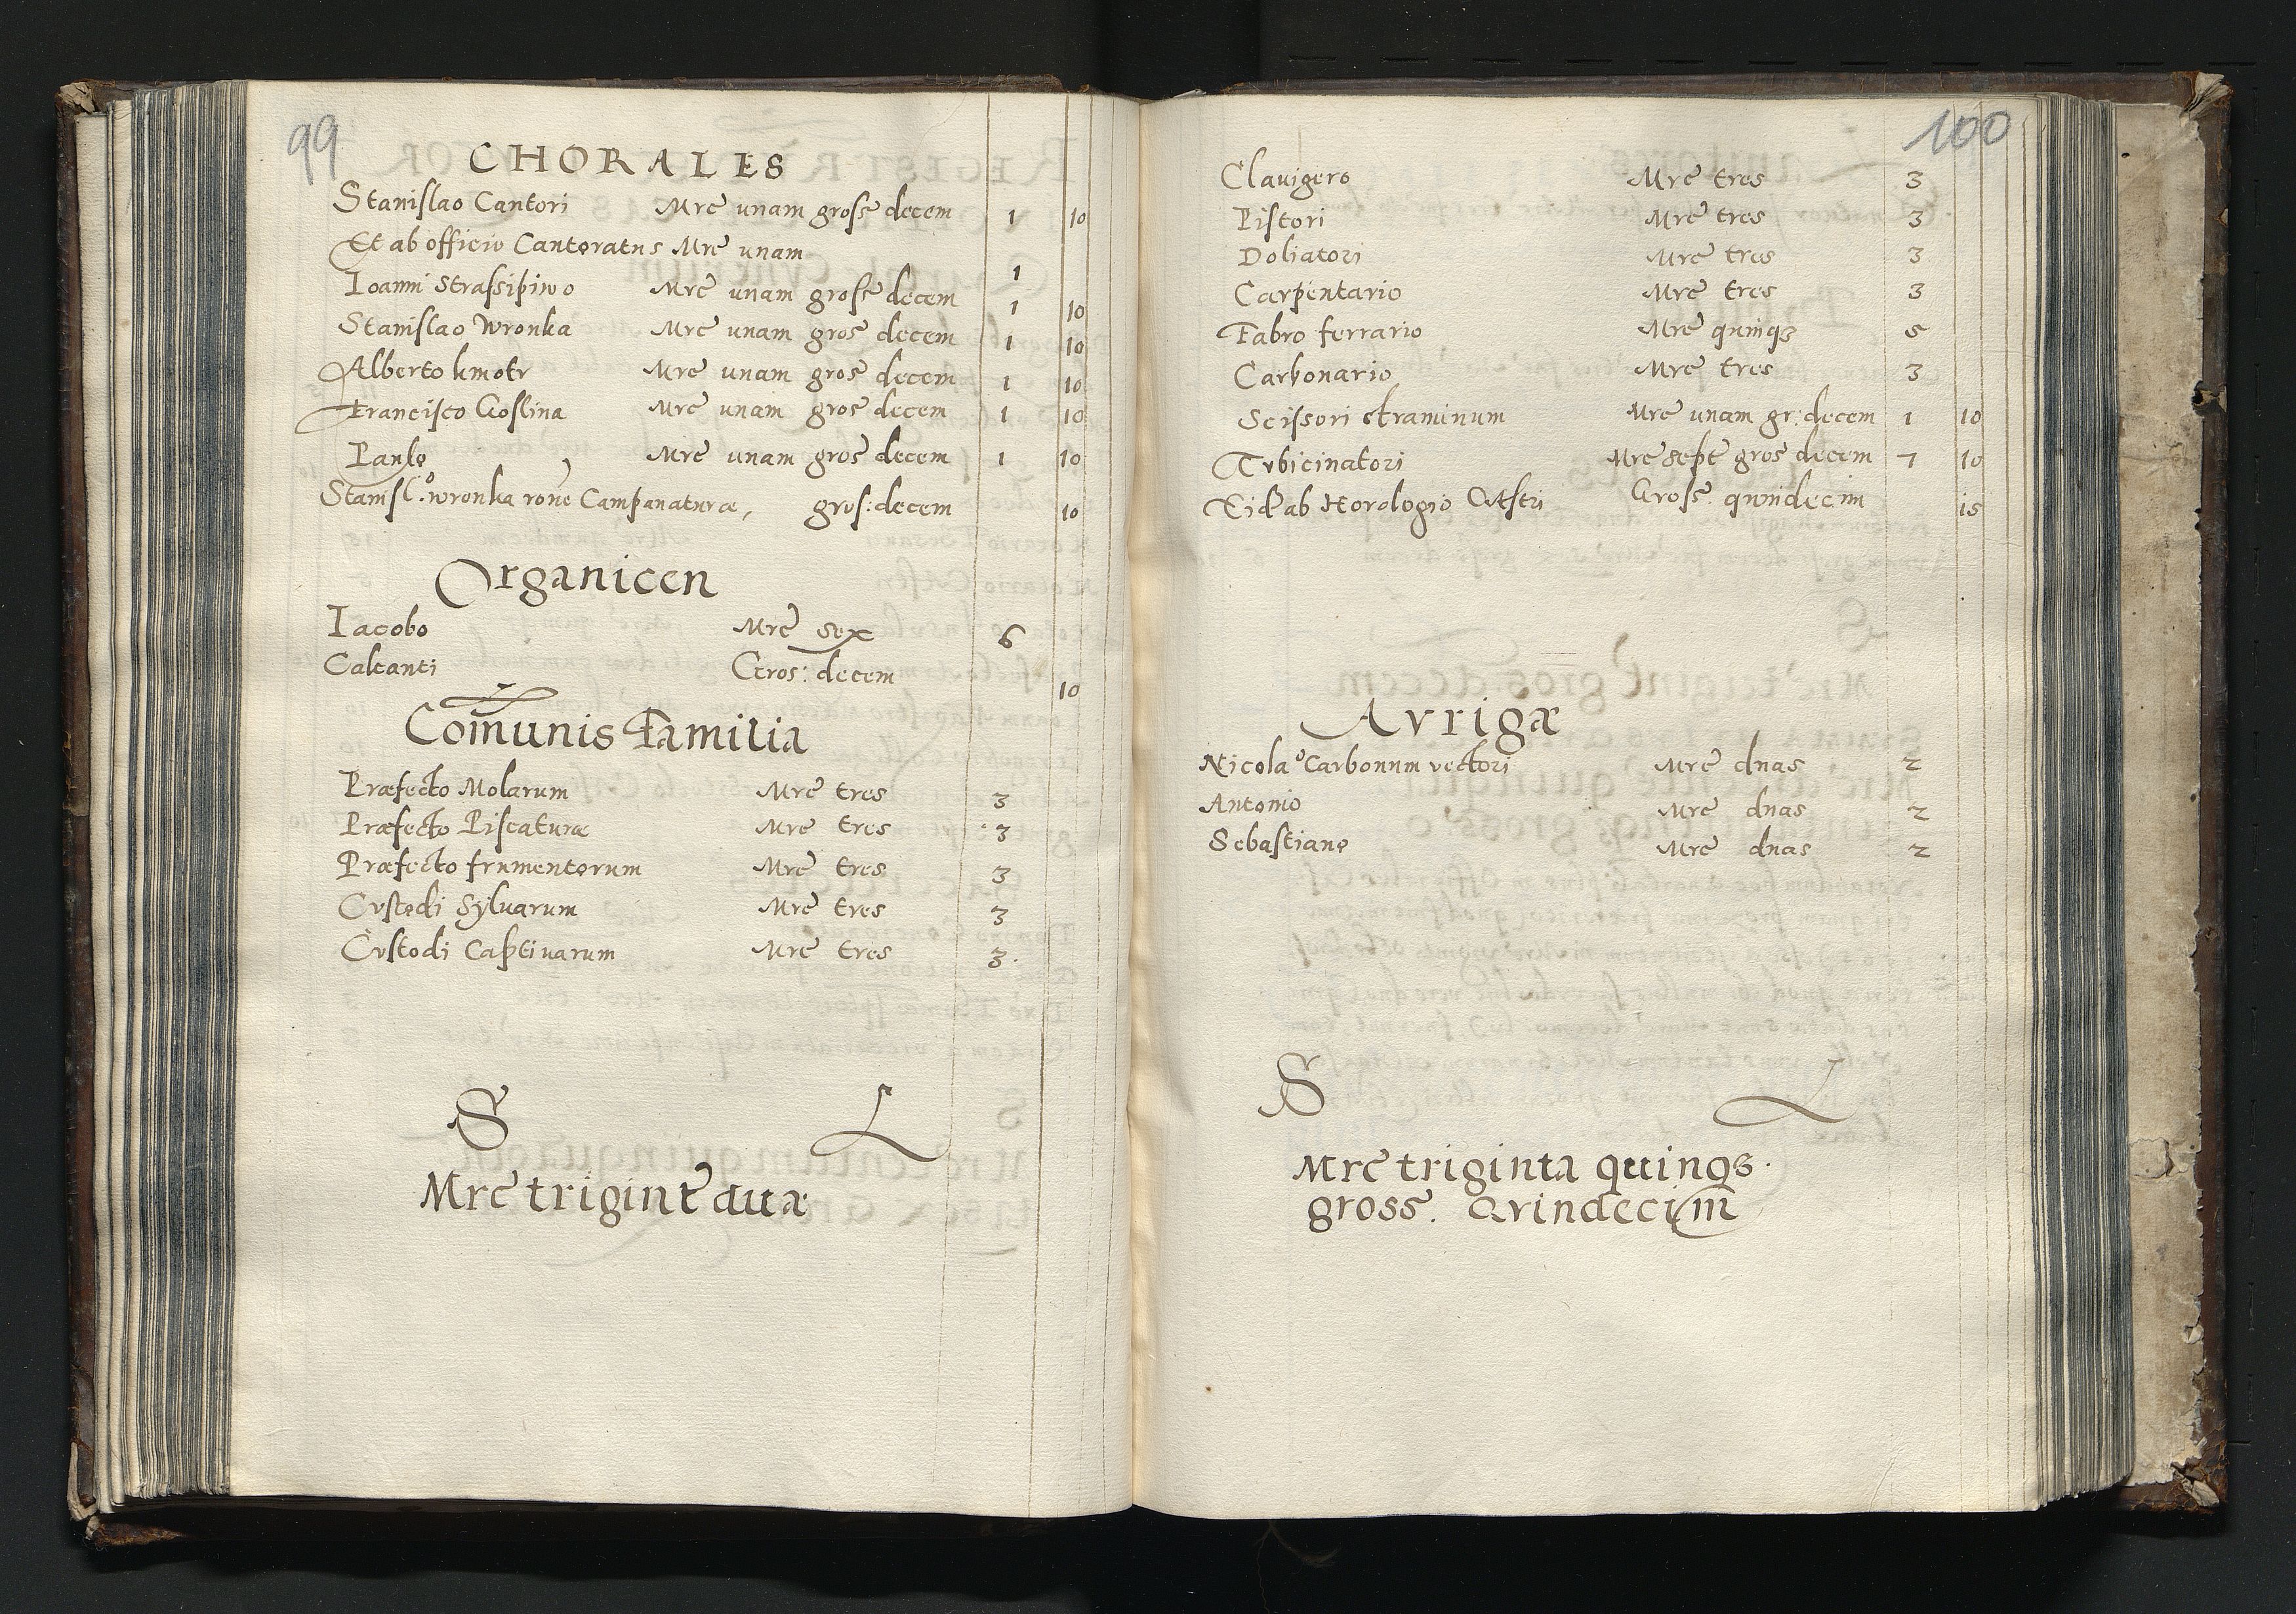 99
CHORALES
Stanislao Cantori Mrc̃ unam gross̃ decem 1 10
Et ab officio Cantoratus Mrc̃ unam 1
Ioanni Strassipiwo Mrc̃ unam gross̃ decem 1 10
Stanislao Wronka Mrc̃ unam gros̃ decem 1 10
Alberto kmotr Mrc̃ unam gros̃ decem 1 10
Francisco Goslina Mrc̃ unam gros̃ decem 1 10
Paulo Mrc̃ unam gros̃ decem 1 10
Stanisl.º wronka rone Campanaturæ, gros: decem 10
Organicen
Iacobo Mrc̃ sex 6
Calcanti Gros: decem 10
Com̃unis Familia
Præfecto Molarum Mrc̃ tres 3
Præfecto Piscaturæ Mrc̃ tres 3
Præfecto frumentorum Mrc̃ tres 3
Cvstodi Sylvarum Mrc̃ tres 3
Cvstodi Captivarum Mrc̃ tres 3.
S L
Mrc̃ trigint̃ duæ
100
Clauigero Mrc̃ tres 3
Pistori Mrc̃ tres 3
Doliatori Mrc̃ tres 3
Carpentario Mrc̃ tres 3
Fabro ferrario Mrc̃ quinqꝫ 5
Carbonario Mrc̃ tres 3
Scissori straminum Mrc̃ unam gr: decem 1 10
Tvbicinatori Mrc̃ sept̃ gros̃ decem 7 10
Eid̃ ab Horologio Cãstri Gross̃ quindecim 15
Avrigæ
Nicolaº Carbonum vectori Mrc̃ duas 2
Antonio Mrc̃ duas 2
Sebastiano Mrc̃ duas 2
S L
Mrc̃ triginta quinqꝫ.
gross̃. Qvindecim̃